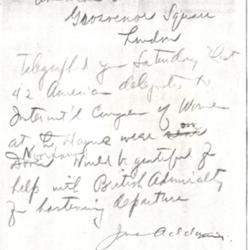 Grosvenor Square
London
Telegraphed you Saturday that
42 American delegates to
Internt'l Congress of Women
at the Hague were on
Noordam Would be grateful for
help with British Admiralty
for hastening departure
Jane Addams.